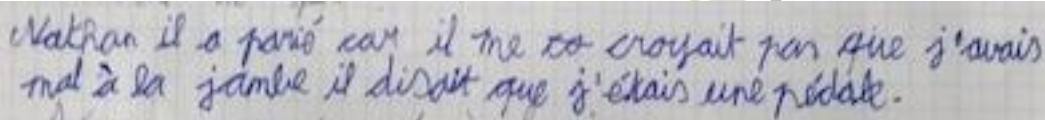 Nathan il a parié car il me co croyait pas que j'avais
mal à la jambe il disait que j'étais une pédale.